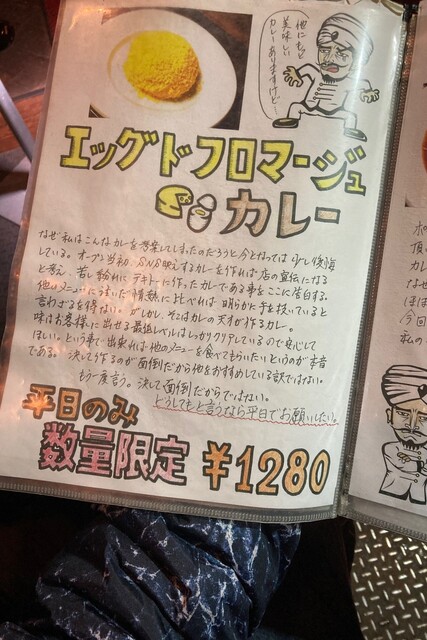 他にもっと
美味しい
カレーありますけど…
エッグドフロマージュ
カレー
なぜ私はこんなカレーを考案してしまったのだろうと今となっては少し後悔
している。オープン当初、SNS映えするカレーを作れば店の宣伝になる
と考え、若い勢いにテキトーに作ったカレーである事をここに告白する。
他のメニューに注いだ情熱に比べれば明らかに手を抜いていると
言わざるを得ない。がしかし、そこはカレーの天才が作るカレー。
味はお客様に出せる最低レベルはしっかりクリアしているので安心して
ほしい。という事で出来れば他のメニューを食べてもらいたいというのが本音
である。決して作るのが面倒だから他をおすすめしている訳ではない。
もう一度言う。決して面倒だからではない。
どうしてもと言うなら平日でお願いしたい。
平日のみ
数量限定 ¥1280